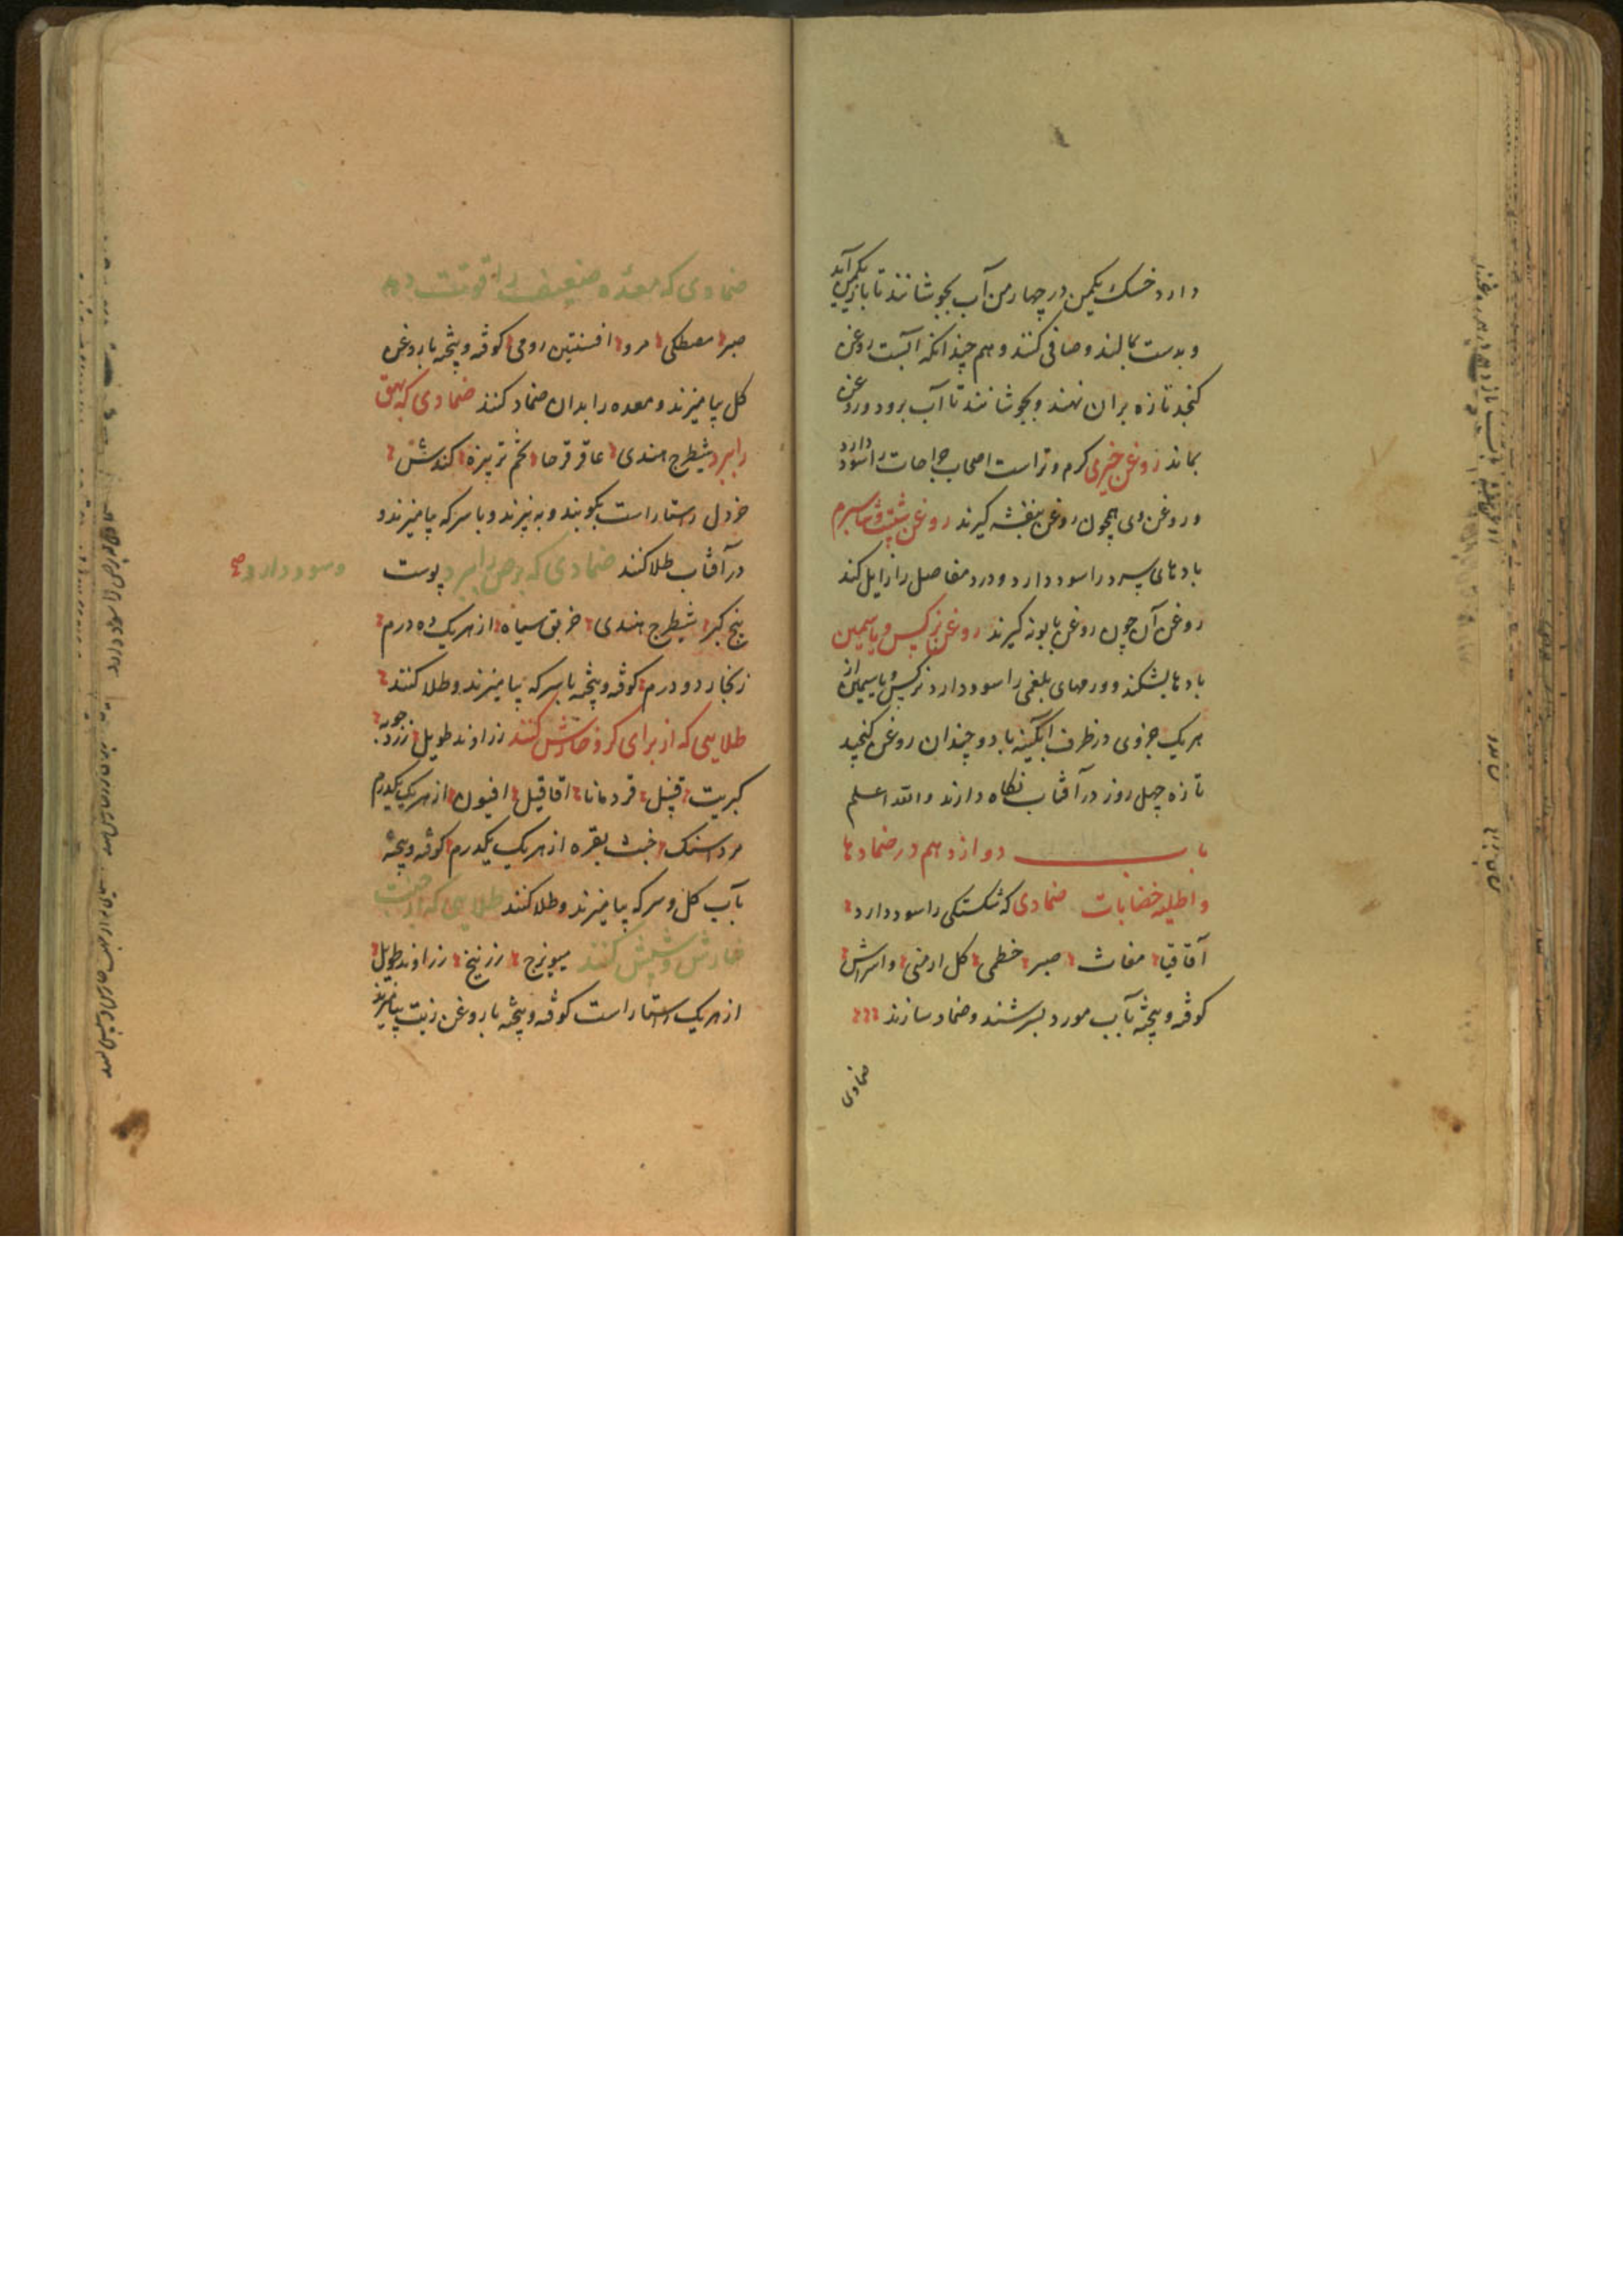 دارد خسک یکمن در چهار من آب بجوشانند تا بازیکمن آید
و بدست بمالند و صافی کنند و هم چندانکه آبست روغن
کنجد تازه بران نهند و بجوشانند تا آب برود و روغن
بماند روغن خیری کرم و تر است اصحاب جراحات را سود دارد
و روغن وی همچون روغن بنفشه کیرند روغن شبت و شاه سپرم
بادهای سرد را سود دارد و درد مفاصل را زایل کند
روغن آن چون روغن بابونه کیرند روغن نرکس و یاسمین
بادها بشکند و ورمهای بلغمی را سود دارد نرکس و یاسمین از
هریک جزوی در ظرف آبکینه با دو چندان روغن کنجید
تازه چهل روز در آفتاب نکاه دارند والله اعلم
باب دوازدهم در ضمادها
و اطلیه خضابات ضمادی که شکستکی را سود دارد
آقاقیا مغاث صبر خطمی کل ارمنی و اسراش
کوفته و پیخته بآب مورد بسرشند و ضماد سازند
ضمادی
ضمادی که معده ضعیف را قوت دهد
صبر مصطکی مرو افسنتین رومی کوفته و پیخته با روغن
کل بیامیزند و معده را بدان ضماد کنند ضمادی که بهق
را ببرد شیطرج هندی عاقرقرحا تخم تربیزه کندش
خردل راستاراست بکوبند و به بیزند و با سرکه بیامیزند و
در آفتاب طلا کنند ضمادی که برص را ببرد پوست
و سود دارد
بیخ کبر شیطرج هندی خربق سیاه از هریک ده درم
زنکار دو درم کوفته و پیخته با سرکه بیامیزند و طلا کنند
طلایی که از برای کر و خارش کنند زراوند طویل زردجوبه
کبریت قنبیل قردمانا اقاقیل افیون از هریک یکدرم
مرداسنک خبث نقره از هریک یکدرم کوفته و پیخته
بآب کل و سرکه بیامیزند و طلا کنند طلایی که از جهت
خارش و شپش کنند میویزج زرنیخ زراوند طویل
از هریک راستاراست کوفته و پیخته با روغن زیت بیامیزند